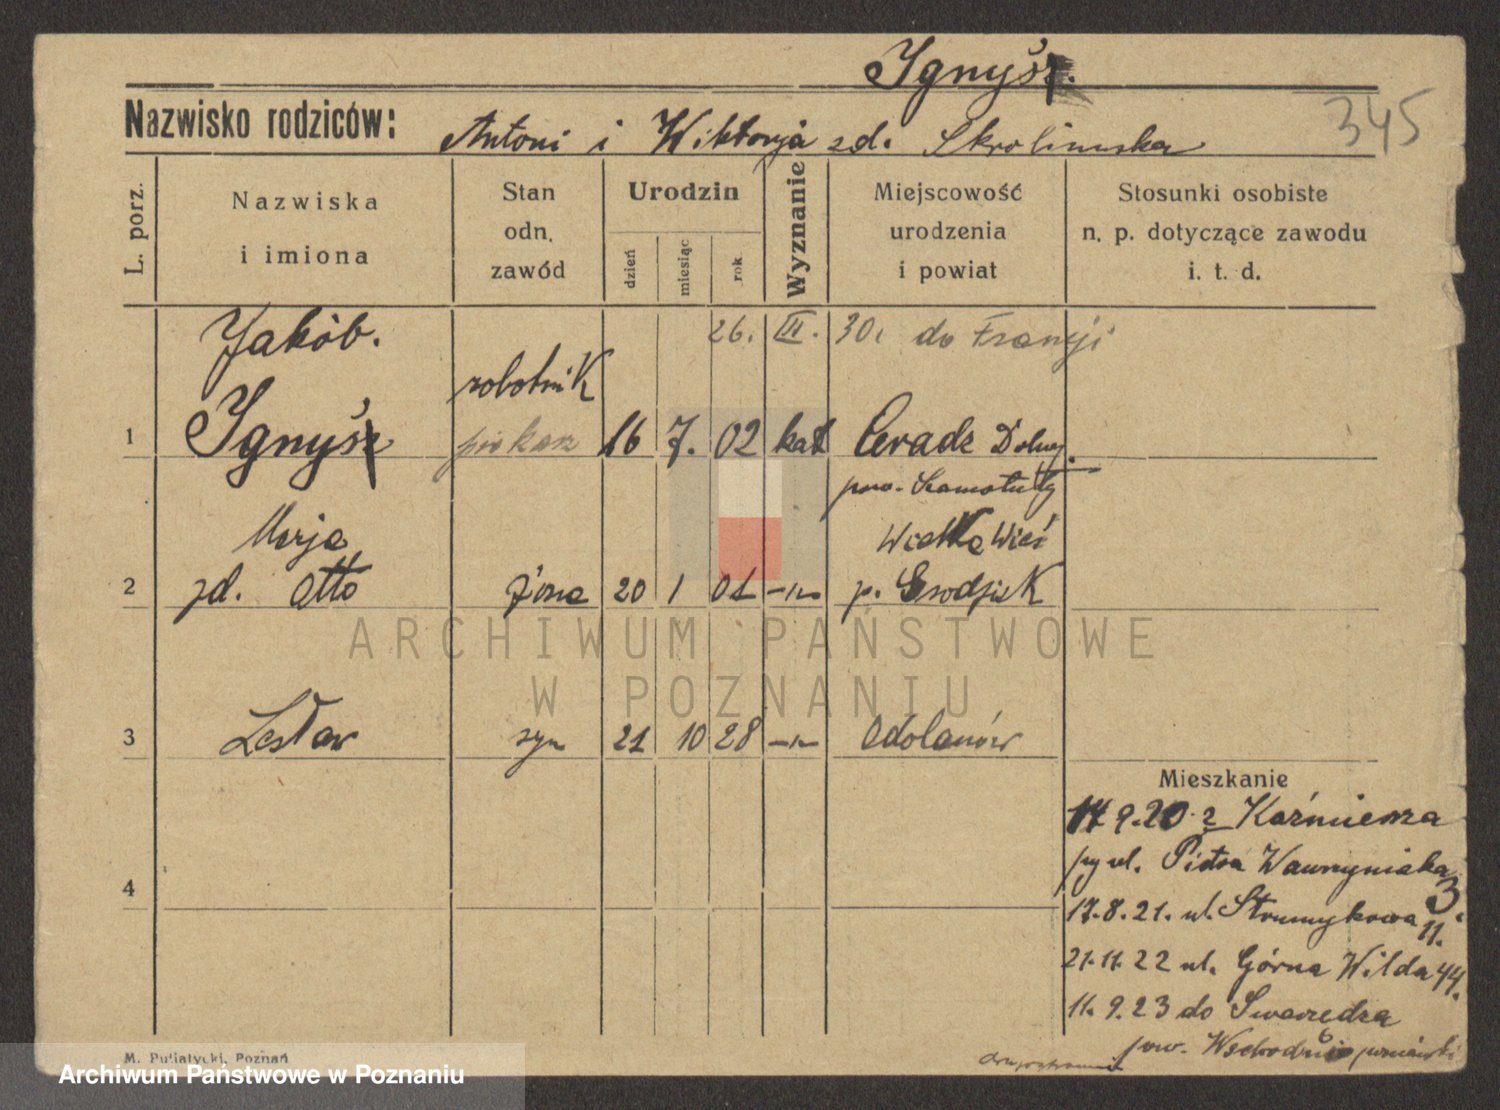 Ignyś.
345
Nazwisko rodziców: Antoni i Wiktorja zd. Skrolimska
L. porz.
Nazwiska
i imiona
Stan
odn.
zawód
Urodzin
dzień
miesiąc
rok
Wyznanie
Miejscowość
urodzenia
i powiat
Stosunki osobiste
n. p. dotyczące zawodu
i. t. d.
26. III. 30. do Francji
Jakób.
robotnik
1 Ignyś piekarz 16 7. 02 kat Ceradz Dolny
pow. Szamotuły
Marja Wielka Wieś
2 zd. Otto żona 20 1 01 -"- p. Grodzisk
3 Lesław syn 21 10 28 -"- Odolanów
4
Mieszkanie
14. 9. 20. z Kaźmierza
przy ul. Piotra Wawrzyniaka 3.
17. 8. 21. ul. Strumykowa 11.
21. 11. 22 ul. Górna Wilda 44.
11. 9. 23 do Swarzędza
pow. Wschodnio poznański
M. Putiatycki, Poznań
ARCHIWUM PAŃSTWOWE
W POZNANIU
Archiwum Państwowe w Poznaniu